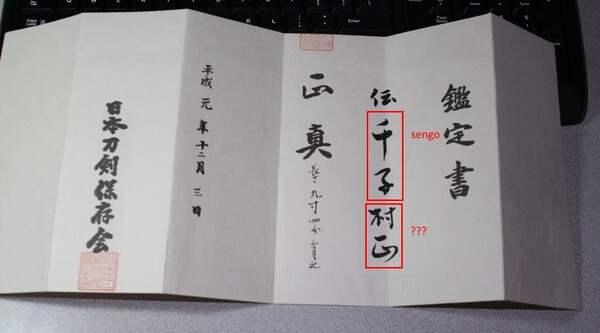 鑑定書
伝千子村正
sengo
???
正真
長サ九寸四分有之
平成元年十二月三日
日本刀剣保存会